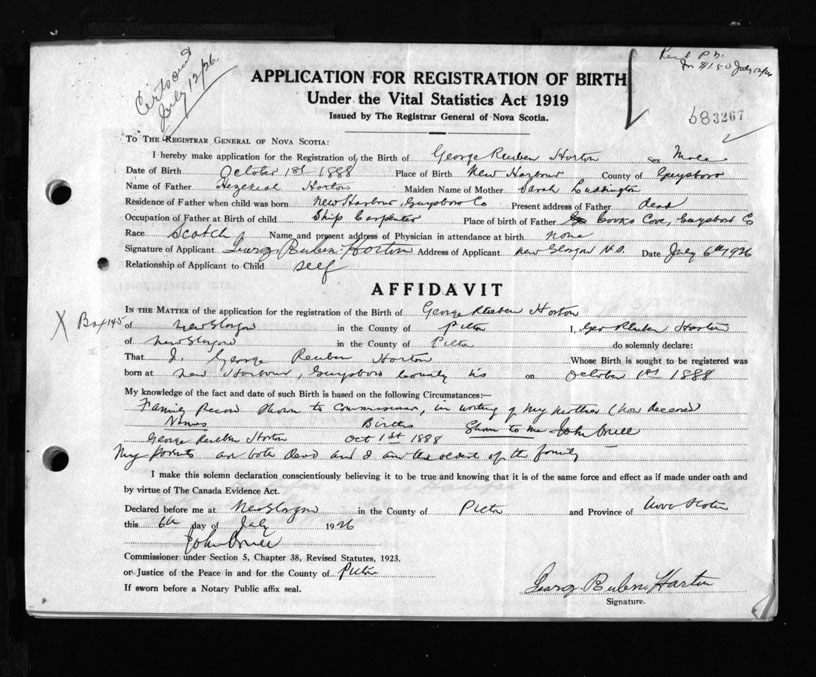 Cert sent
July 12/26
July 12/26
683267
APPLICATION FOR REGISTRATION OF BIRTH
Under the Vital Statistics Act 1919
Issued by The Registrar General of Nova Scotia.
TO THE REGISTRAR GENERAL OF NOVA SCOTIA:
I hereby make application for the Registration of the Birth of George Reuben Horton Sex Male
Date of Birth October 1st 1888 Place of Birth New Harbour County of Guysboro
Name of Father Hezekiah Horton Maiden Name of Mother Sarah Luddington
Residence of Father when child was born New Harbour, Guysboro Co Present address of Father dead
Occupation of Father at Birth of child Ship Carpenter Place of birth of Father Cooks Cove, Guysboro Co
Race Scotch Name and present address of Physician in attendance at birth none
Signature of Applicant George Reuben Horton Address of Applicant New Glasgow N.S. Date July 6th 1926
Relationship of Applicant to Child self
AFFIDAVIT
IN THE MATTER of the application for the registration of the Birth of George Reuben Horton
X Box 145 of New Glasgow in the County of Pictou I, Geo Reuben Horton
of New Glasgow in the County of Pictou do solemnly declare:
That I, George Reuben Horton Whose Birth is sought to be registered was
born at New Harbour, Guysboro County on October 1st 1888
My knowledge of the fact and date of such Birth is based on the following Circumstances:—
Family Record shown to Commissioner, in writing of my mother (now deceased)
Names Births Shown to me John
George Reuben Horton Oct 1st 1888
My parents are both dead and I am the oldest of the family
I make this solemn declaration conscientiously believing it to be true and knowing that it is of the same force and effect as if made under oath and
by virtue of The Canada Evidence Act.
Declared before me at New Glasgow in the County of Pictou and Province of Nova Scotia
this 6th day of July 1926
John
Commissioner under Section 5, Chapter 38, Revised Statutes, 1923.
or Justice of the Peace in and for the County of Pictou
If sworn before a Notary Public affix seal.
George Reuben Horton
Signature.